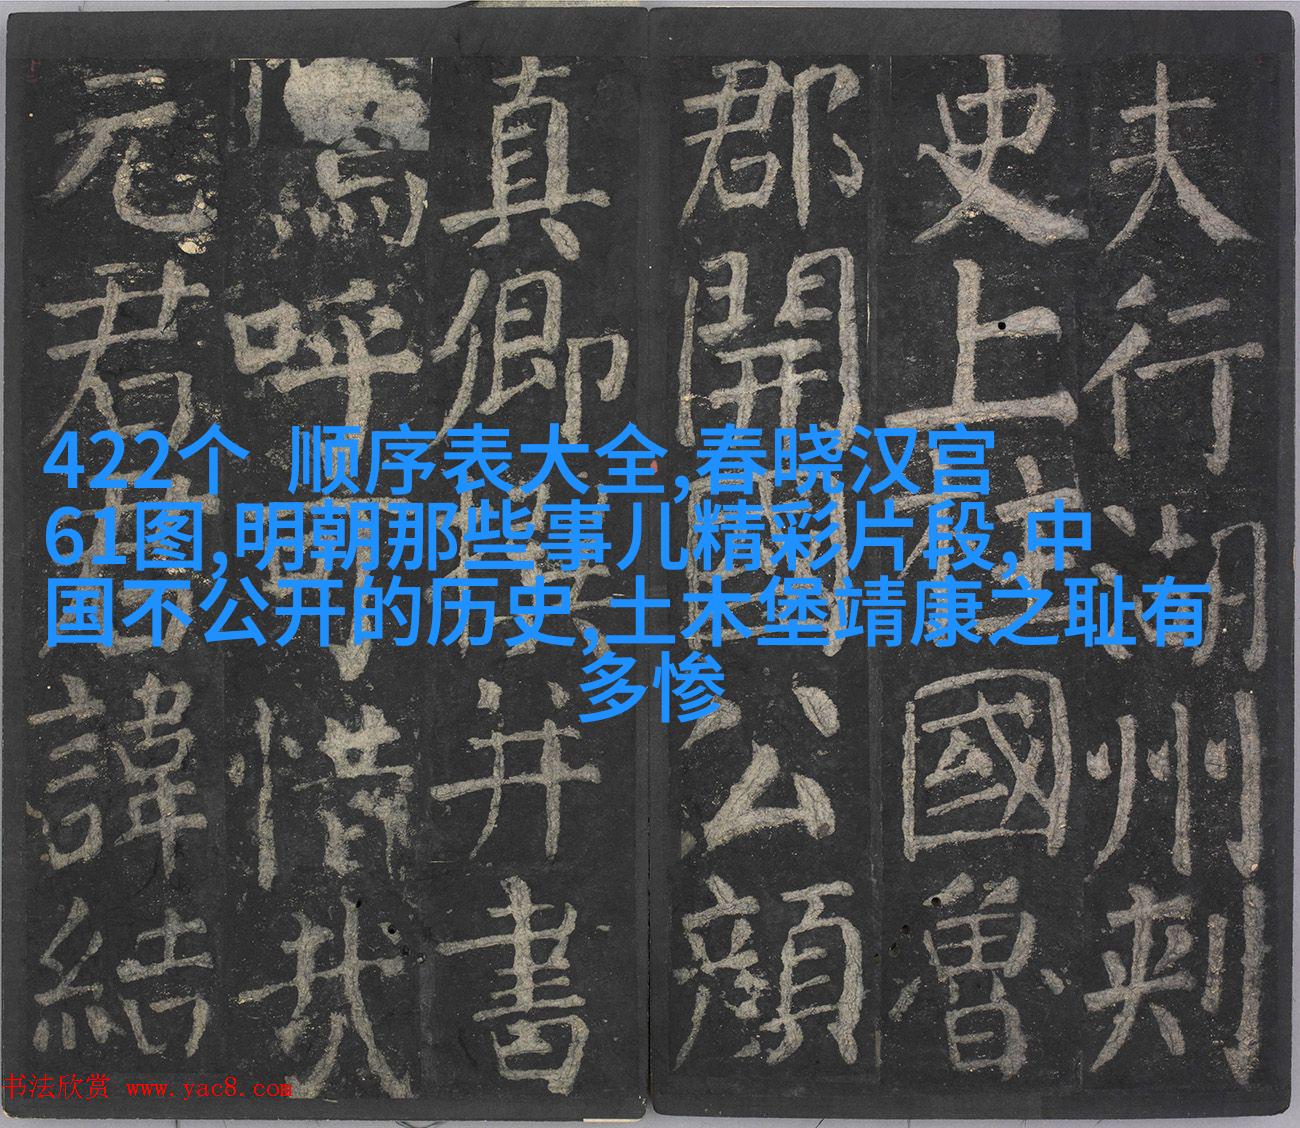 夫行湖州刺
史上柱國魯
郡開國公顏
真卿撰并書
嗚呼可惜哉
元君君諱結
422个 顺序表大全,春晓汉宫
61图,明朝那些事儿精彩片段,中
国不公开的历史,土木堡靖康之耻有
多惨
书法欣赏 www.yac8.com